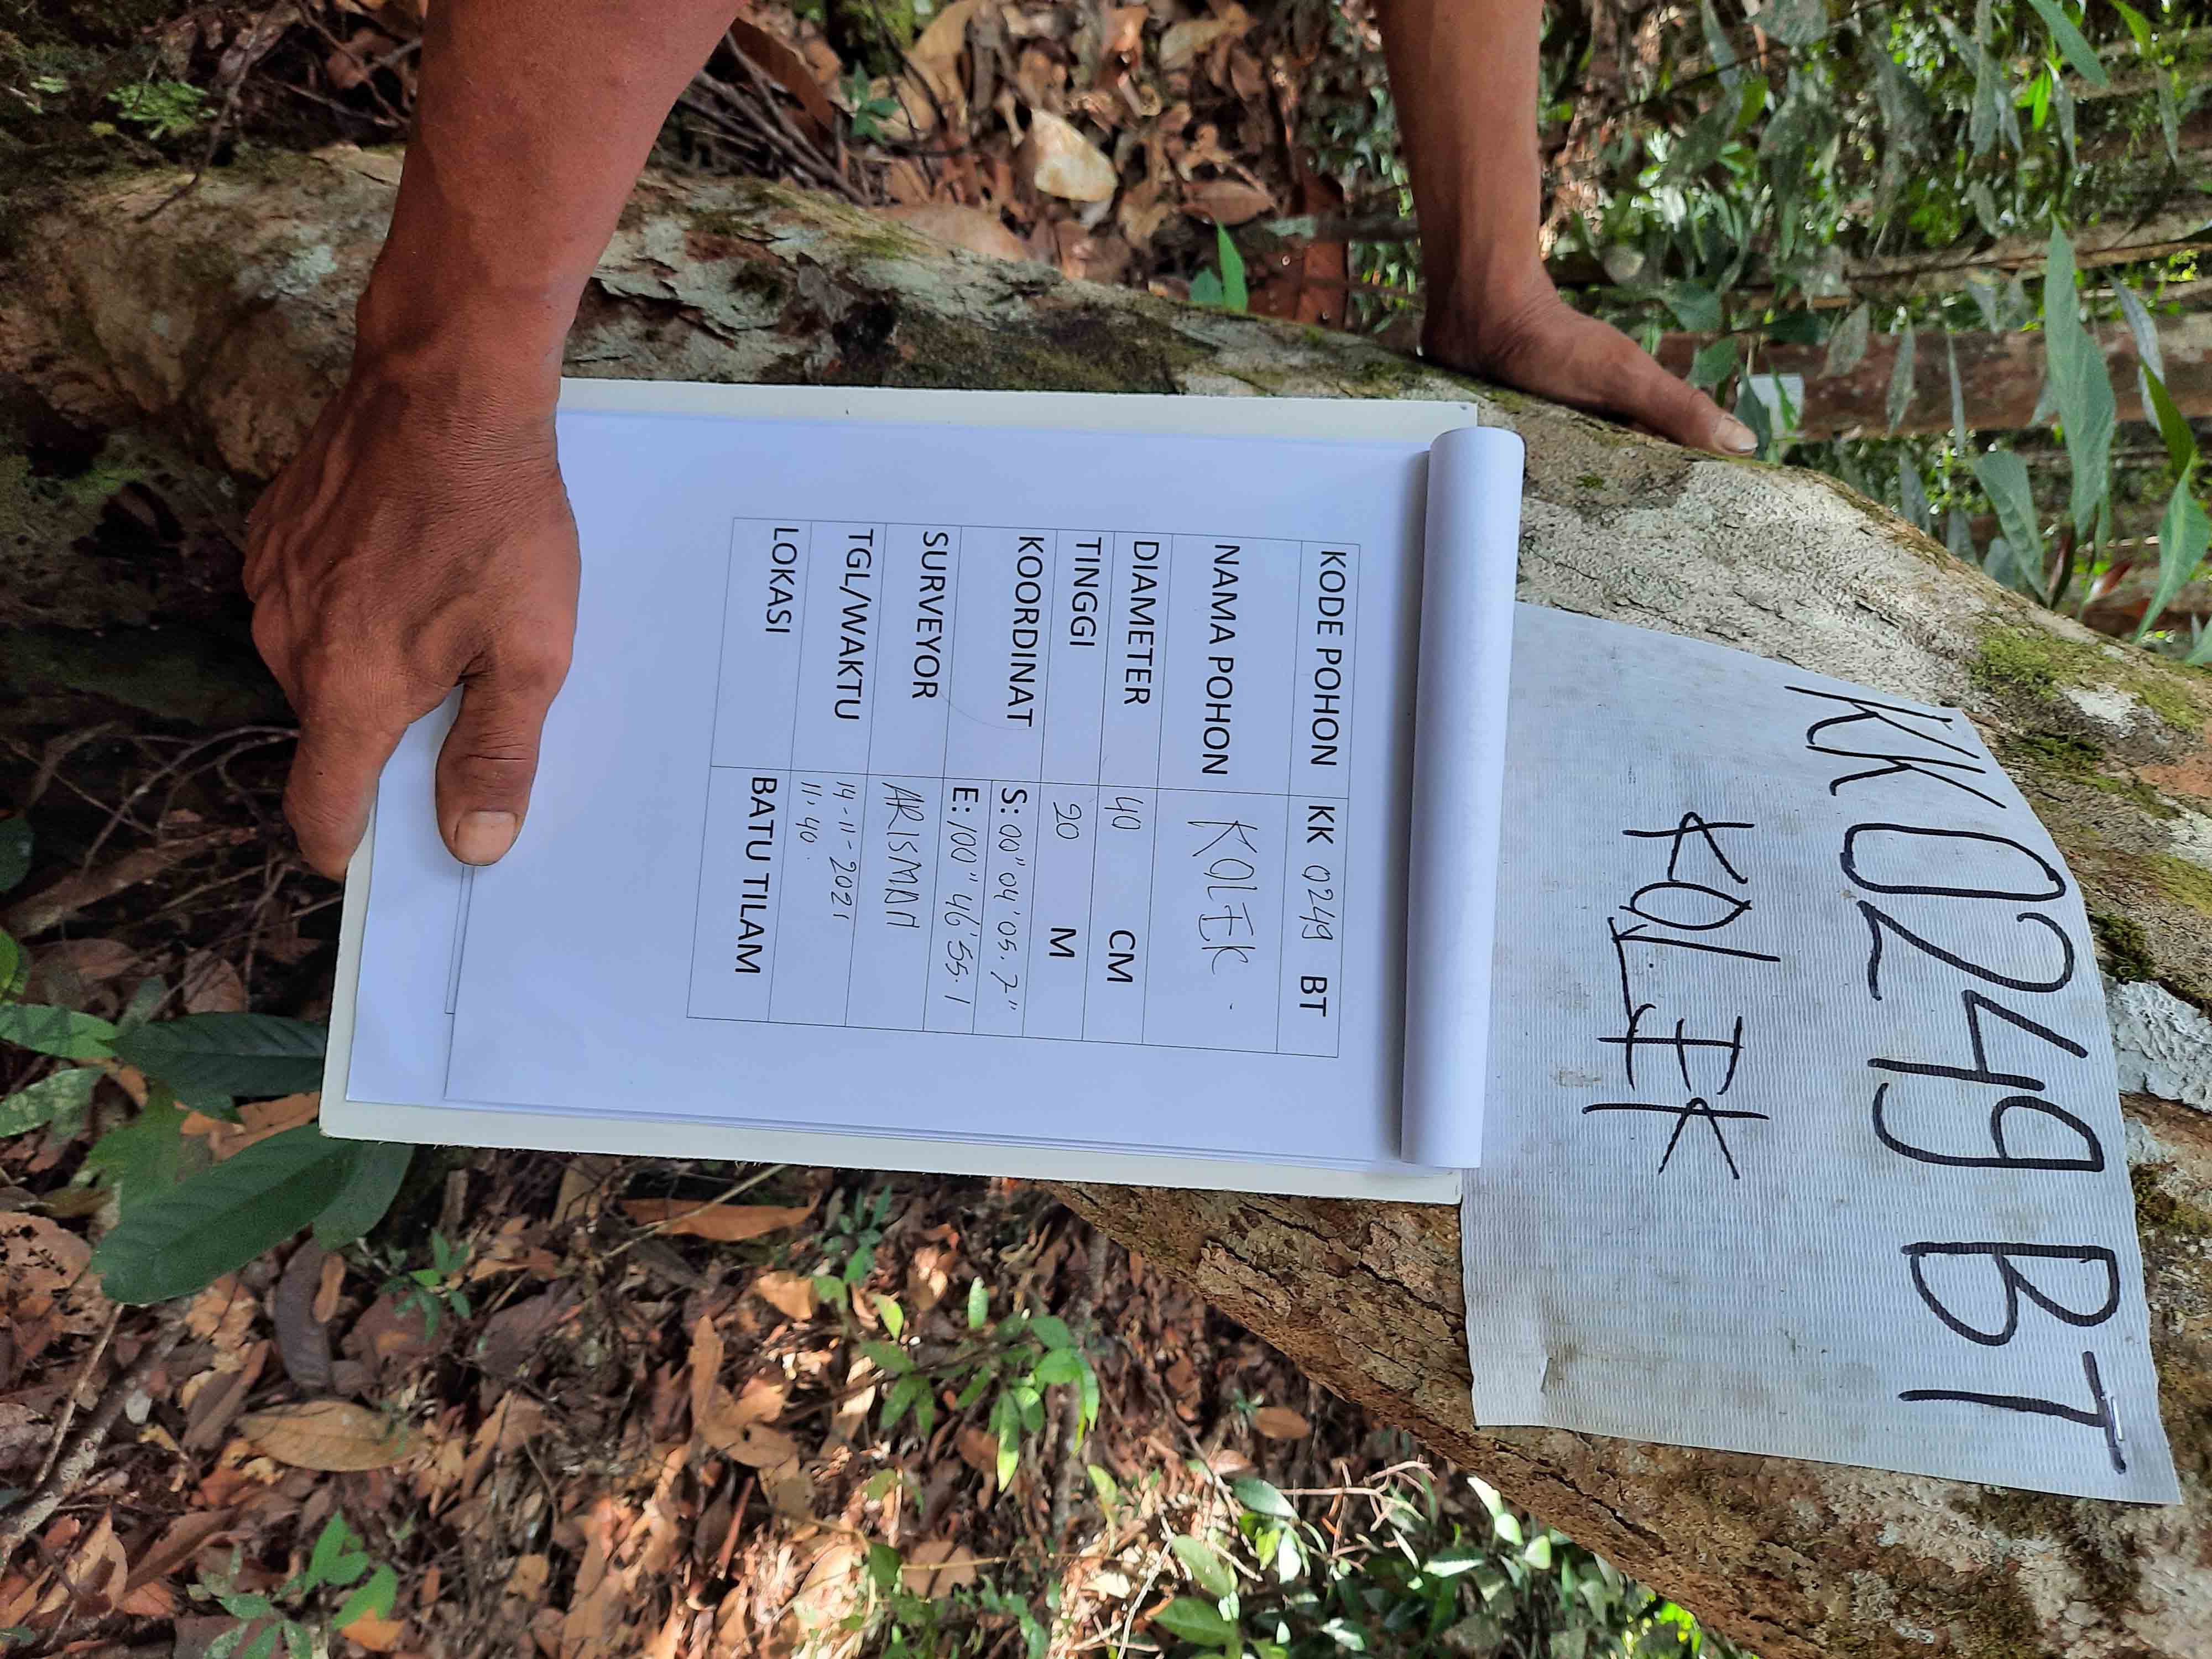 KK 0249 BT
KOLEK
KODE POHON KK 0249 BT
NAMA POHON KOLEK
DIAMETER 40 CM
TINGGI 20 M
KOORDINAT S: 00" 04' 05.7"
E: 100" 46' 55.1
SURVEYOR ARISMAN
TGL/WAKTU 14-11-2021
11.40.
LOKASI BATU TILAM